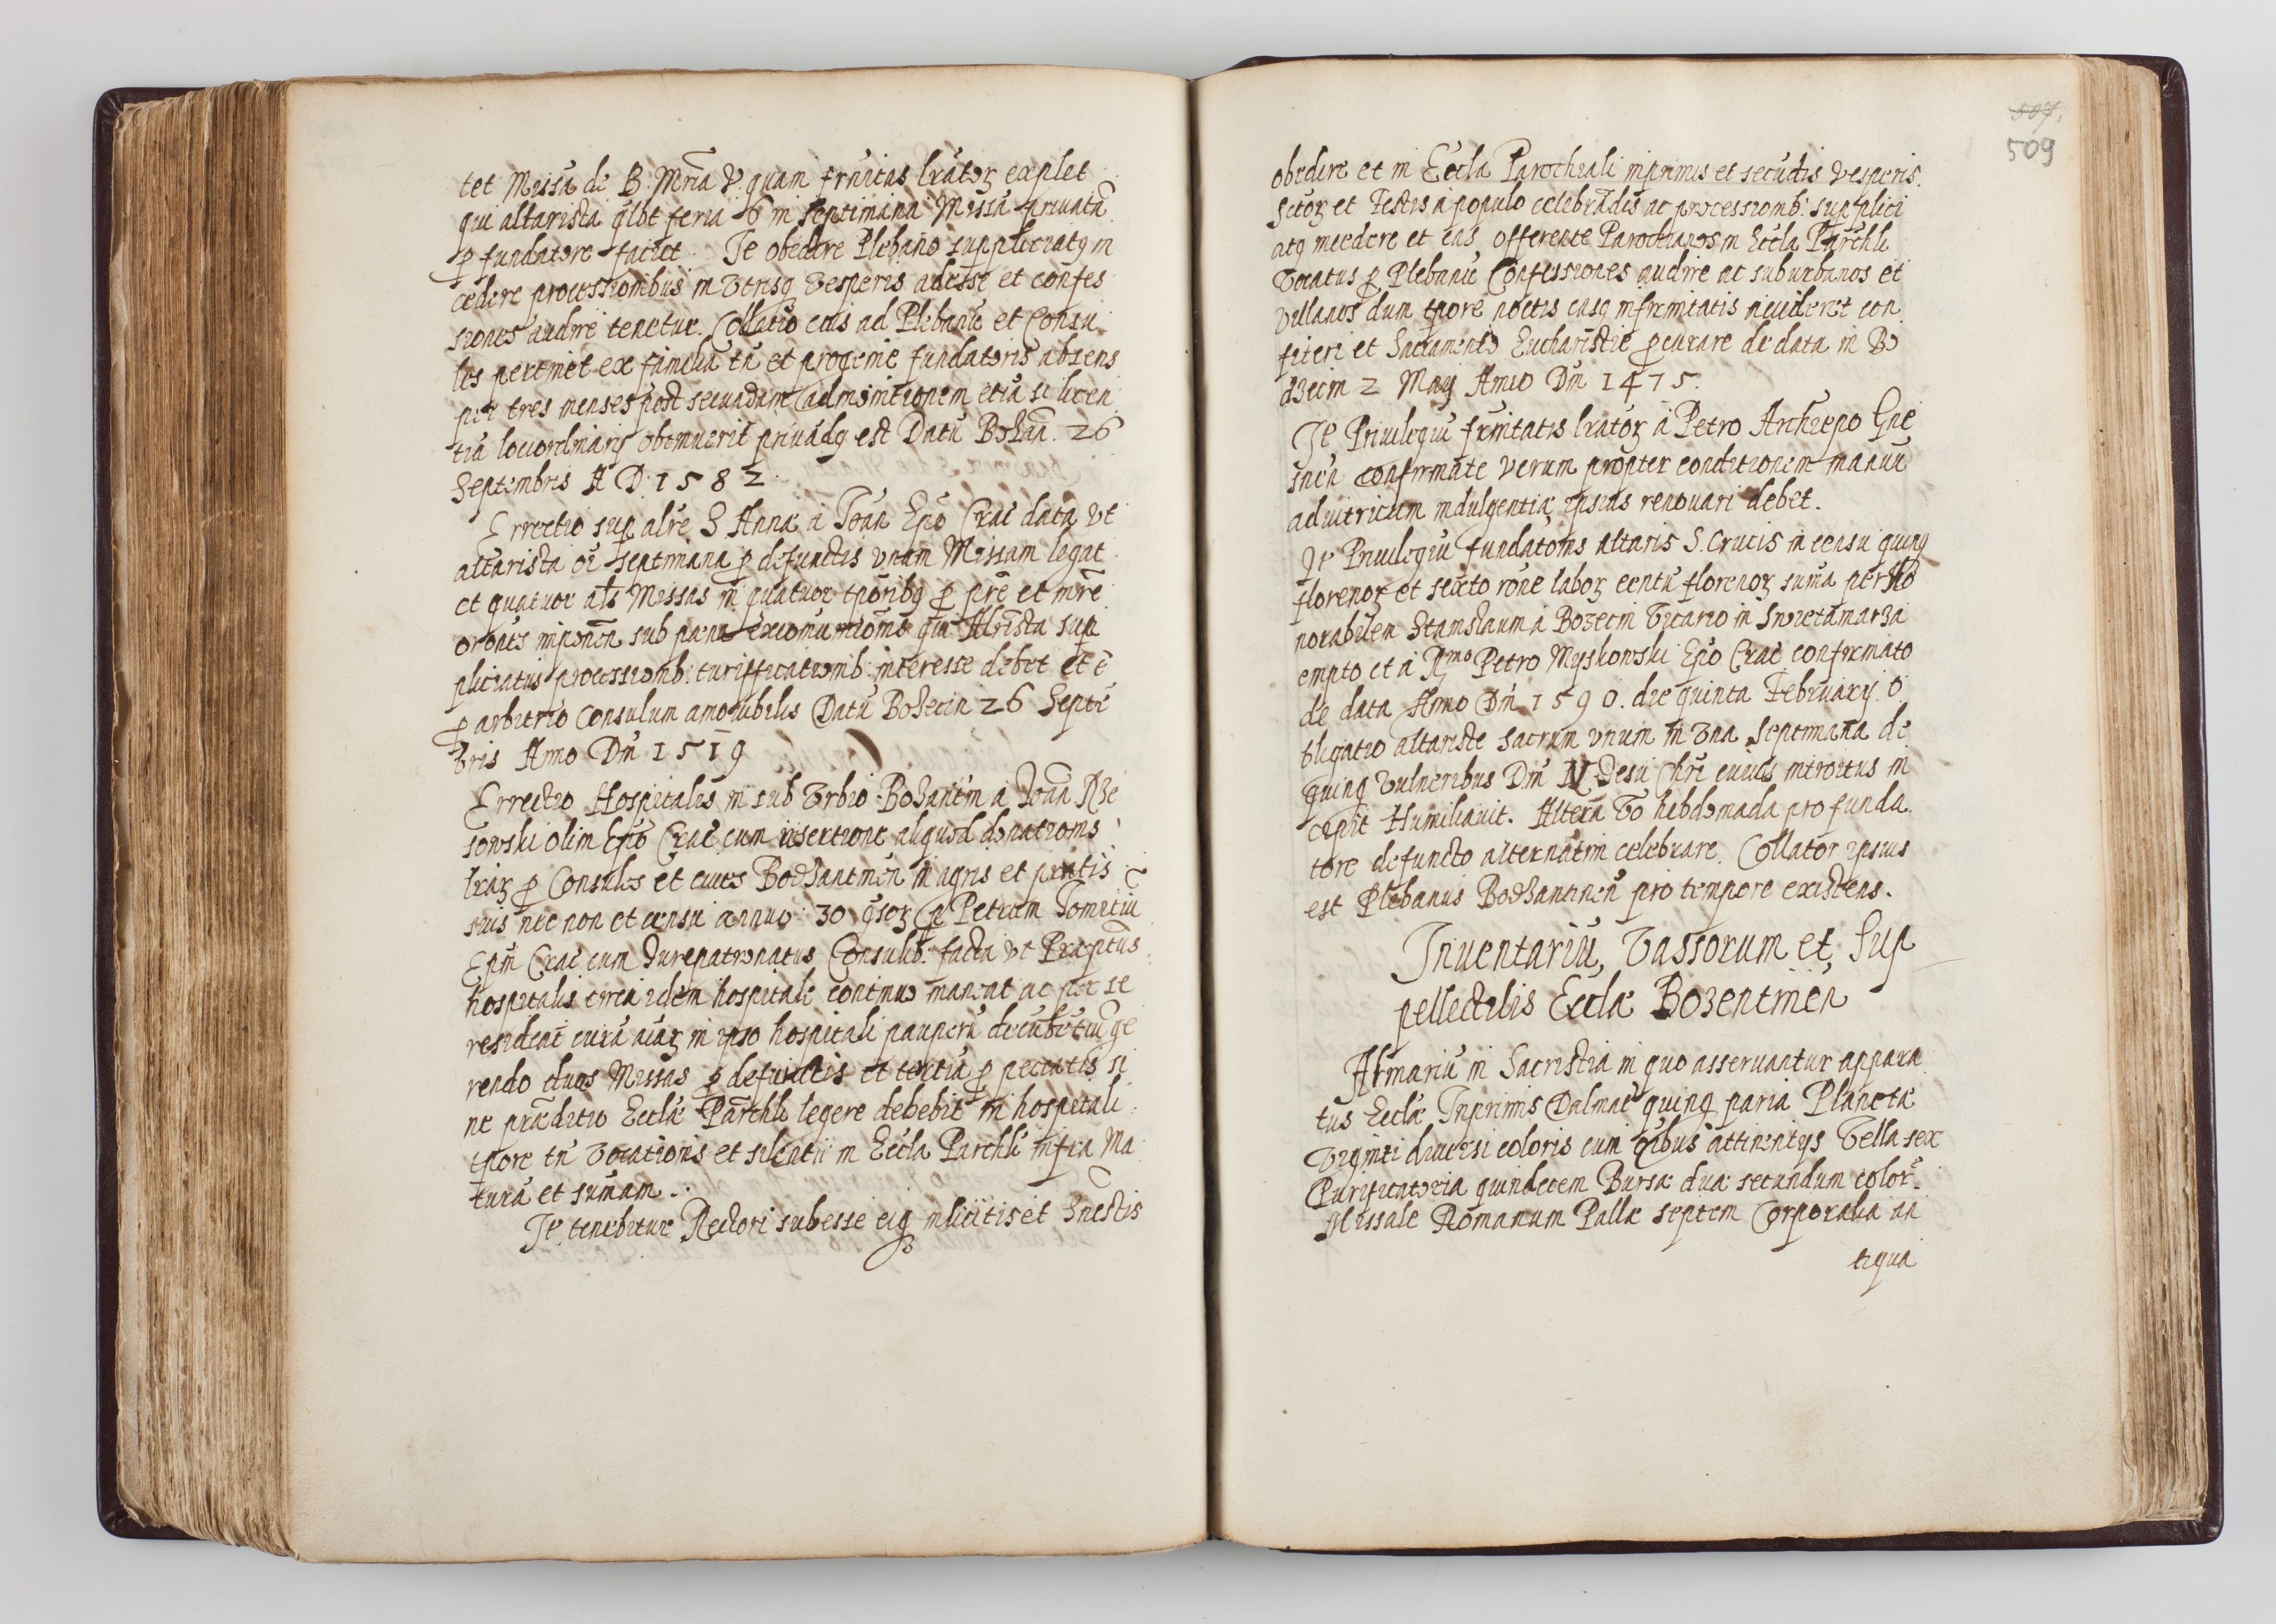 tet Missã de B. Mria V. quam frnitas lratoꝝ explet
qui altarista qlbt feria 6 in septimana Missã priuatã
ꝑ fundatore faciet. Ite obedire Plebano suppliciatq in
cedire processionibus in vtrisq vesperis adesse et confes
siones audire tenetur. Collatio eius ad Plebanũ et Consu
les pertinet ex familia tñ et progenie fundatoris absens
per tres menses post secundam admonitionem etiã si licen
tiã lociordinarij obtinuerit priuãdq est Datũ Bozañ. 26
Septembris A D. 1582.
Errectio sup altre S Annæ a Ioan Epo Crac data vt
altarista oi septimana ꝑ defunctis vnam Missam legat
et quatuor als Missas in quatuor tporibq ꝑ pre et mre
orones imponen sub pæna excomunionis qui Altrista sup
plicatius processionib: turifficationib: interesse debet et e
ꝑ arbitrio Consulum amouibilis Datũ Bozecin 26 Septe
bris Anno Dni 1519
Errectio Hospitalis in sub Vrbio Bozantin a Ioan Rze
sowski olim Epo Crac cum insertione aliquod donationis
lraꝝ ꝑ Consules et ciues Bodzantinen in agris et pratis
suis nec non et censu annuo 30 gsoꝝ ꝑ Petrum Tomitiũ
Epm Crac cum Iurepatronatus Consulib: facta vt Præpitus
hospitalis circa idem hospitale continuo maneat ac per se
resideat curã aiaꝝ in ipso hospitali pauperũ decubetiũ ge
rendo duos Missas ꝑ defunctis et tertiã ꝑ peccatis si
ne præditio Eccla Parchli legere debebit in hospitali
tpore tñ vocationis et silentii in Eccla Parchli infra Ma
turã et sumam.
Ite tenebitur Rectori subesse eiq in licitis et hnestis
507,
509
obedire et in Eccla Parocheali inprimis et secũdis vesperis
Sctoꝝ et Festis a populo celebrãdis ac processionib: supplici
atq incedere et eas offerente Parochianos in Eccla Parchli
Vocatus ꝑ Plebanũ Confessiones audire ac suburbanos et
villanos dum tpore noctis casq infirmitatis incideret con
fiteri et Sacramento Eucharistie ꝑcurare de data in Bo
dzecin 2 Maij Anno Dni 1475.
Ite Priuilegiũ frnitatis lratoꝝ a Petro Archiepo Gne
snen confirmate verum propter conditionem manuũ
adiutricium indulgentia ipsius renouari debet.
Ite Priuilegiũ fundationis altaris S. Crucis in censu quinq
florenoꝝ et sexto rone laboꝝ centũ florenoꝝ suma per Ho
norabilem Stanislaum a Bozecin Vicario in Swietamarza
empto et a Rmo Petro Myskowski Epo Crac confirmato
de data Anno Dni 1590. die quinta February. O
bligatio altariste sacrum vnum in vna septimana de
quinq vulneribus Dni N Iesu Chri cuius introitus in
cepit Humiliauit. Alterã Vo hebdomada pro funda
tore defuncto alternatim celebrare. Collator ipsius
est Plebanus Bodzantinen pro tempore existens.
Inuentariũ, Vassorum et, Sup
pellectilis Eccla Bozentinen
Armariũ in Sacristia in quo asseruantur appara
tus Eccla Inprimis Dalmac quinq paria Planeta
Viginti diuersi coloris cum oibus attinentys Vella sex
Purificatoria quindecem Bursa dua secundum color.
Missale Romanum Palla septem Corporalia an
tiqua